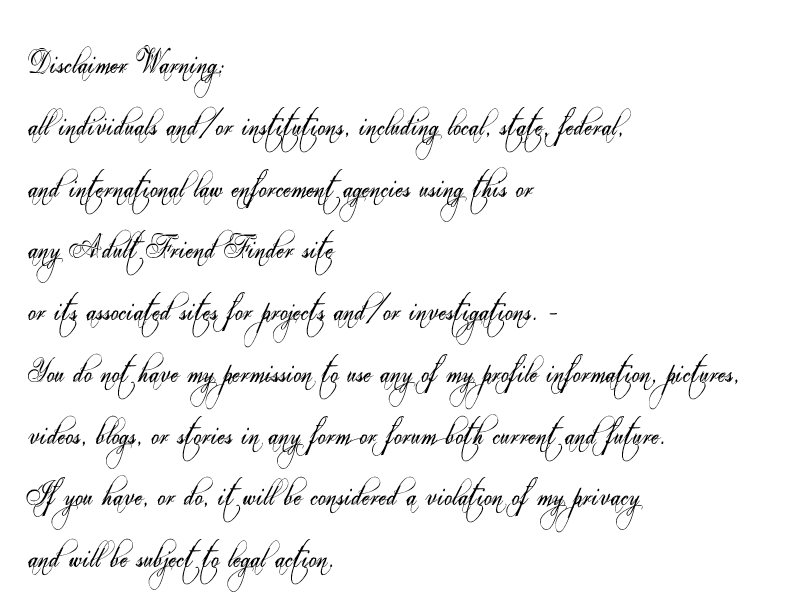 Disclaimer Warning;
all individuals and/or institutions, including local, state, federal,
and international law enforcement agencies using this or
any Adult Friend Finder site
or its associated sites for projects and/or investigations. -
You do not have my permission to use any of my profile information, pictures,
videos, blogs, or stories in any form or forum both current and future.
If you have, or do, it will be considered a violation of my privacy
and will be subject to legal action.